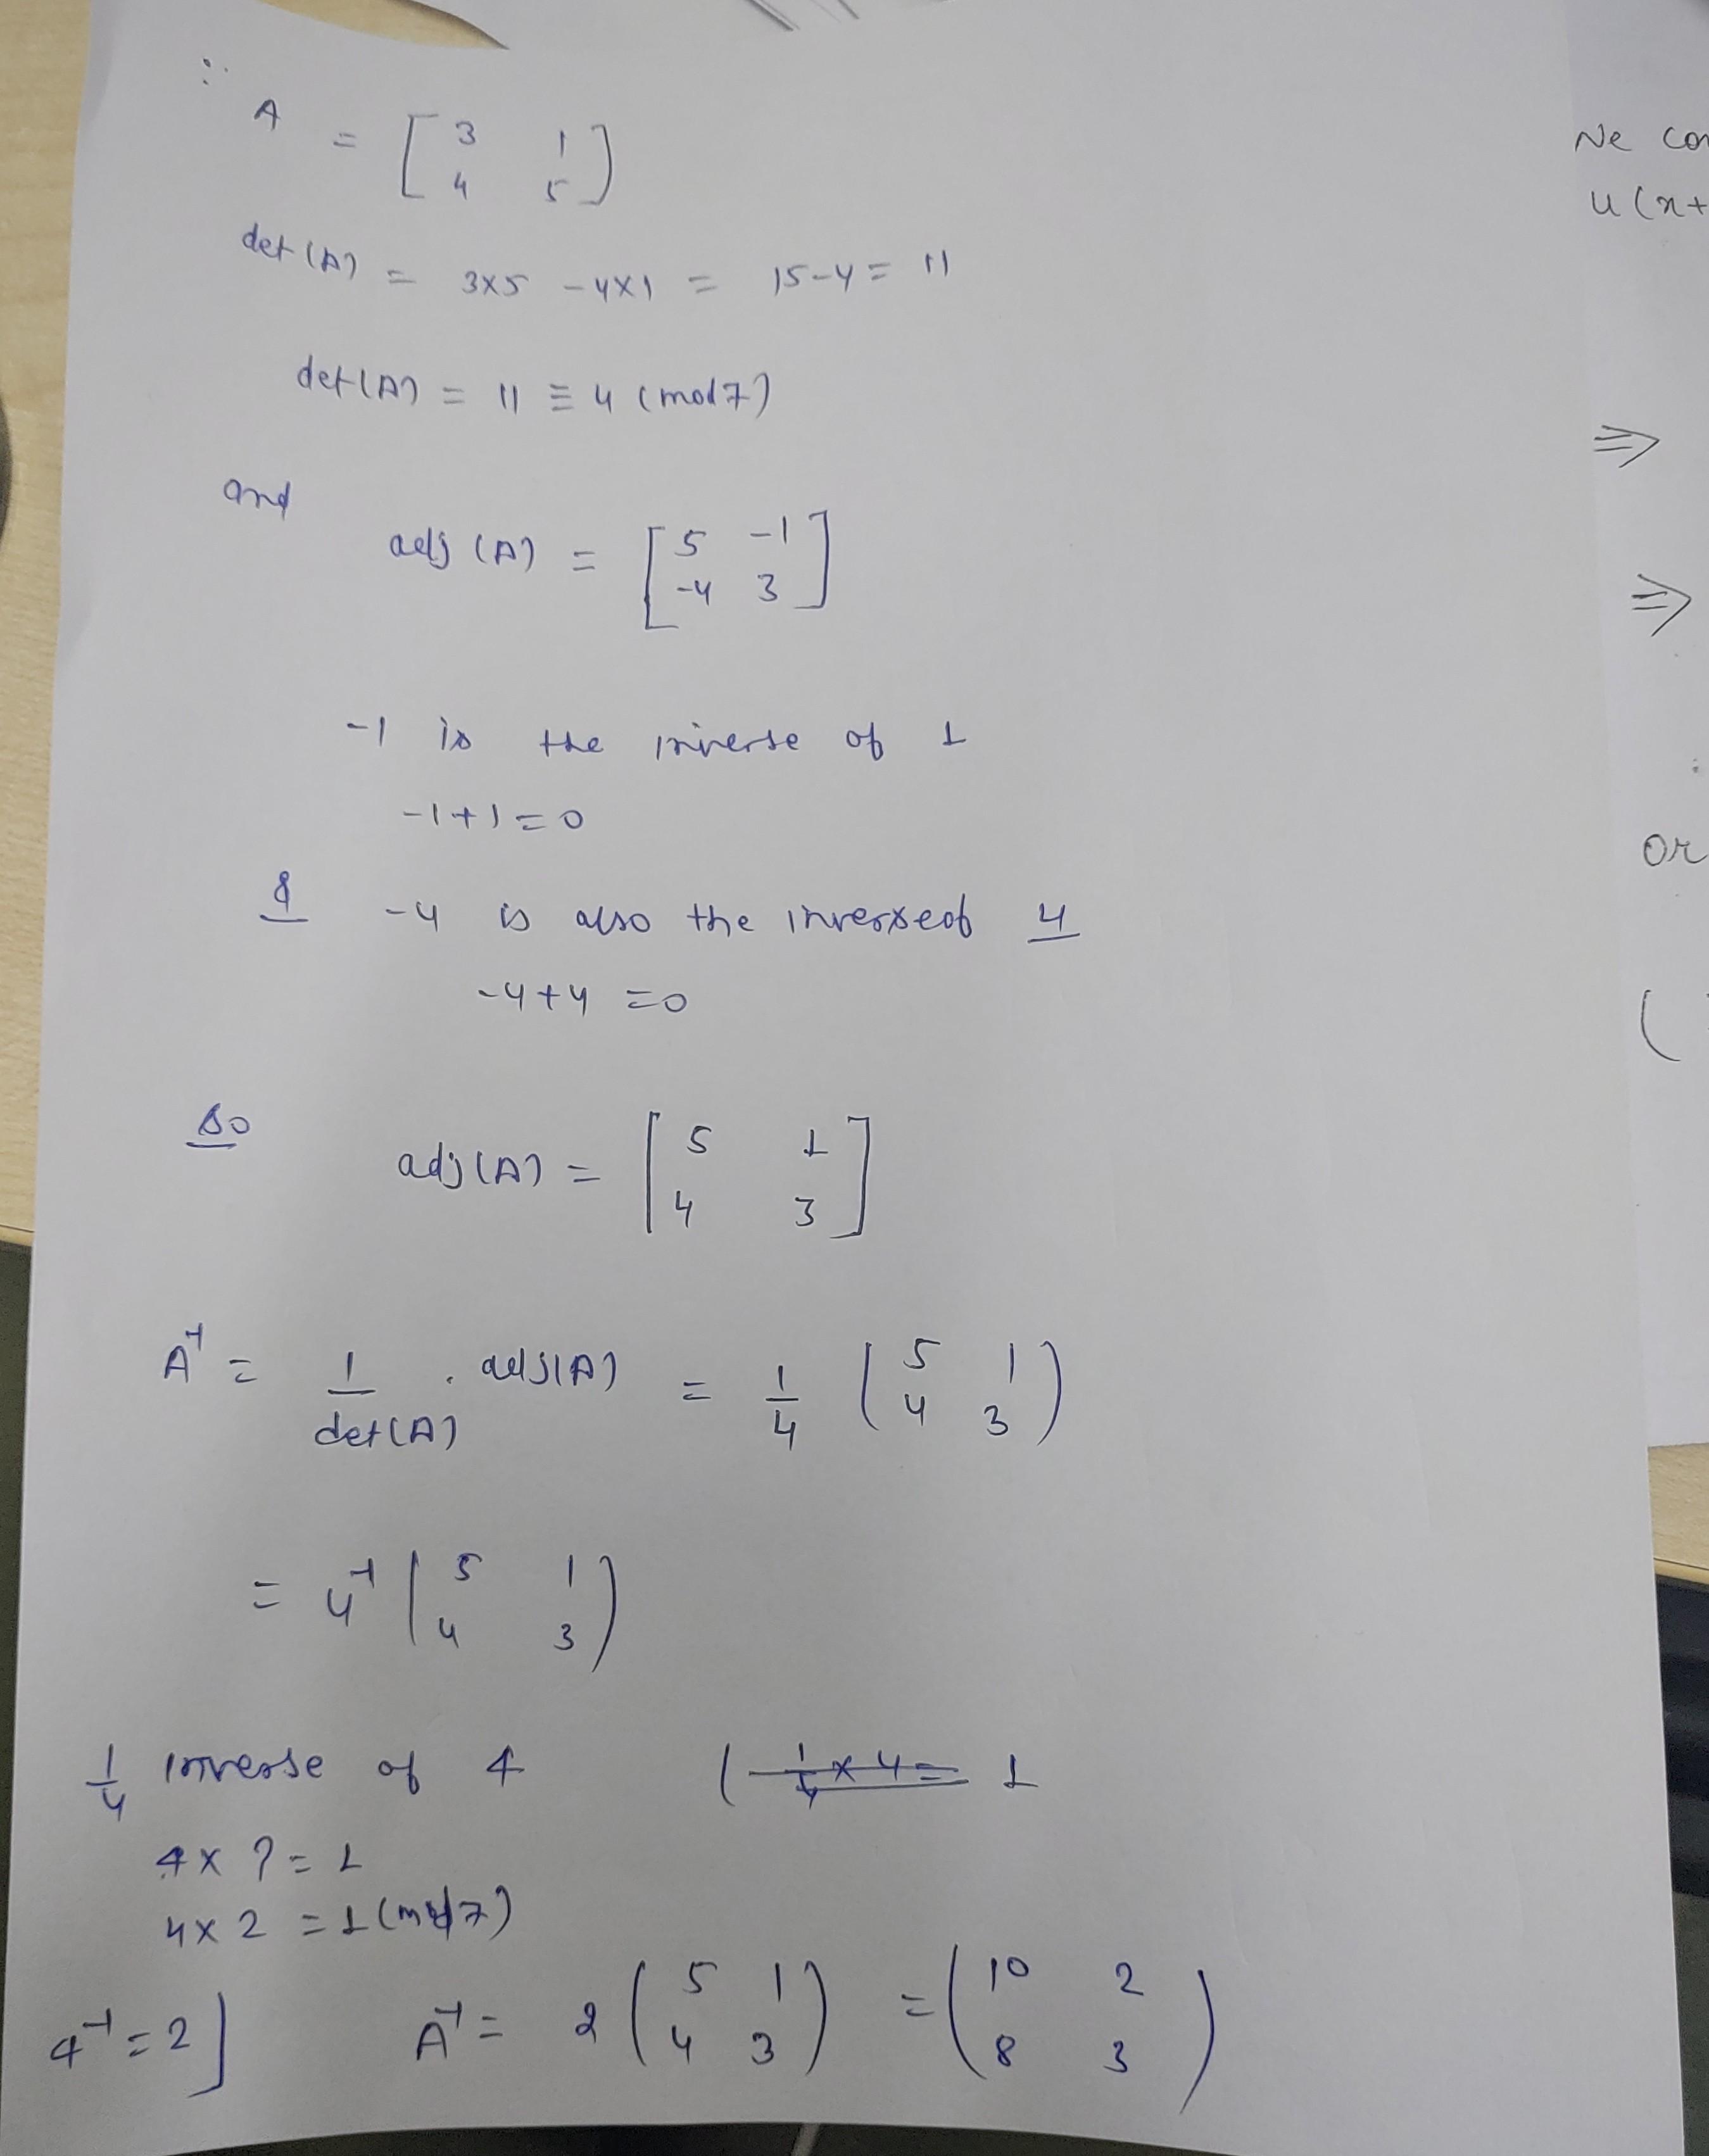 ∴
A = [ 3 1
4 5 )
det (A) = 3x5 - 4x1 = 15-4 = 11
det(A) = 11 ≡ 4 (mod 7)
and
adj (A) = [ 5 -1
-4 3 ]
-1 is the inverse of 1
-1+1=0
& -4 is also the inverse of 4
-4+4 =0
so
adj(A) = [ 5 1
4 3 ]
A⁻¹ = 1/det(A) . adj(A) = 1/4 ( 5 1
4 3 )
= 4⁻¹ ( 5 1
4 3 )
1/4 inverse of 4 ( 1/4 x 4 = 1
4 x ? = 1
4 x 2 = 1 (mod 7)
4⁻¹ = 2 ] A⁻¹ = 2 ( 5 1
4 3 ) = ( 10 2
8 3 )
We con
u(x+
⇒
⇒
:
or
(